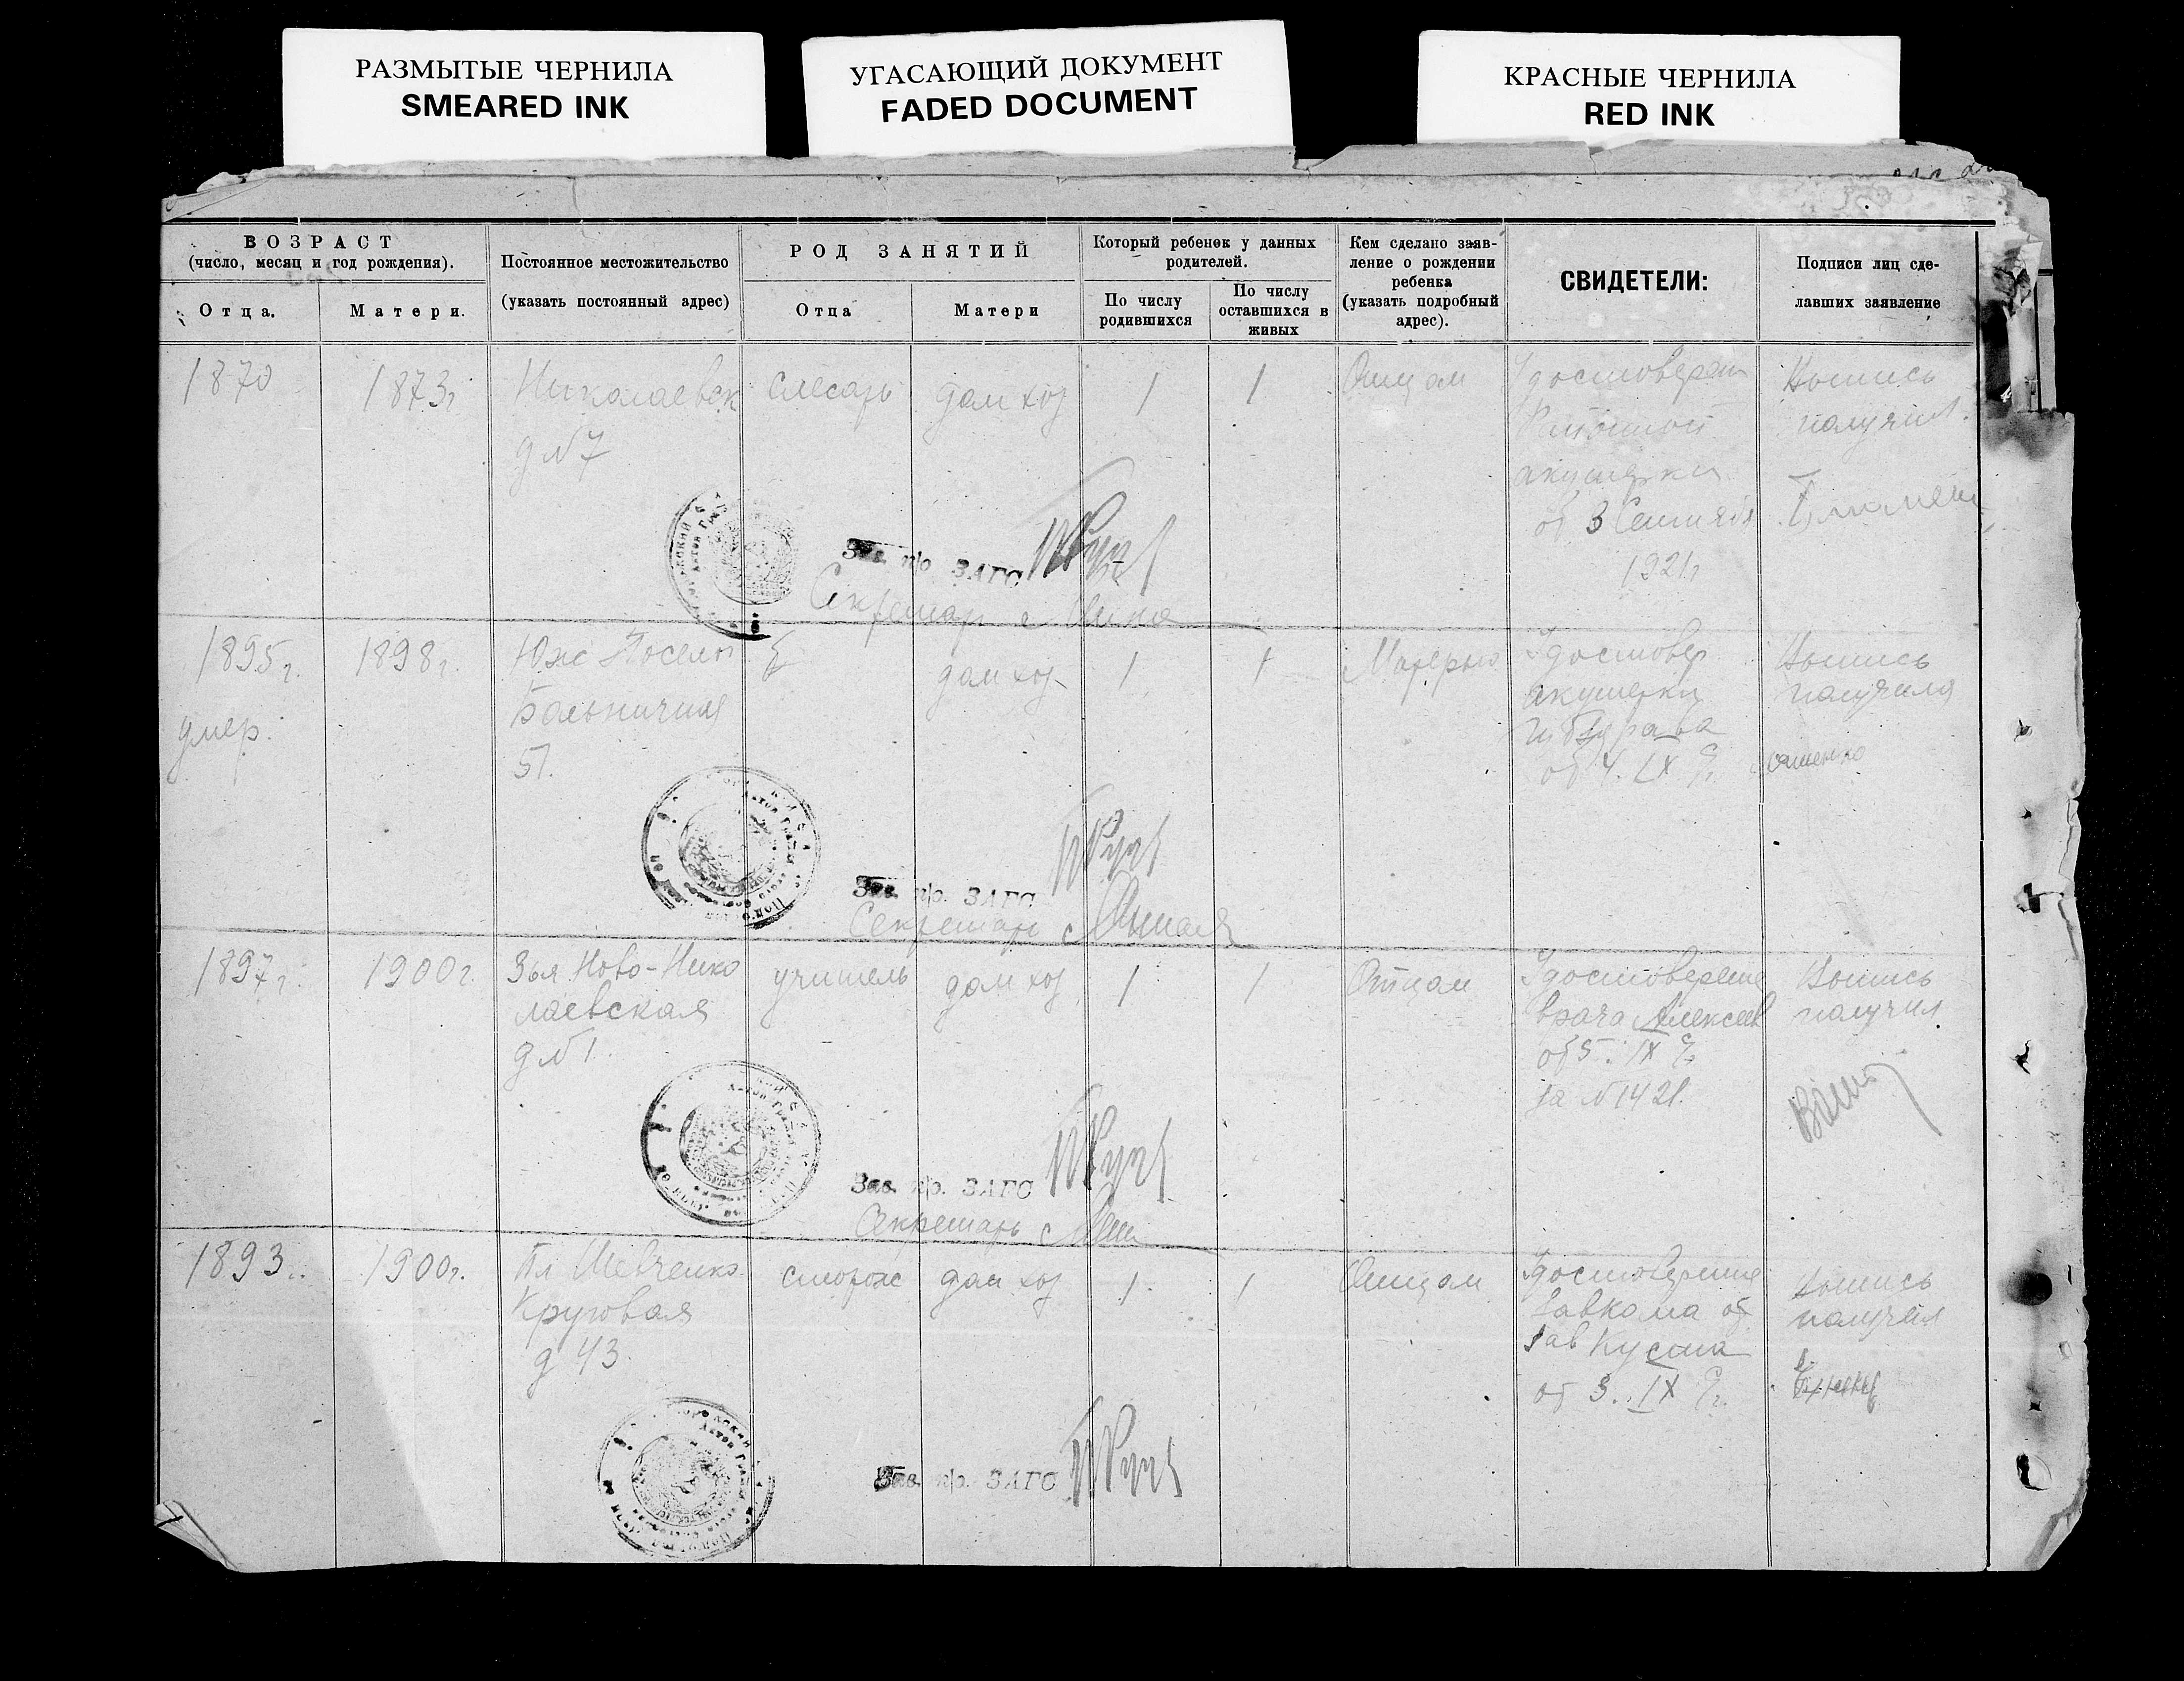 РАЗМЫТЫЕ ЧЕРНИЛА
SMEARED INK
УГАСАЮЩИЙ ДОКУМЕНТ
FADED DOCUMENT
КРАСНЫЕ ЧЕРНИЛА
RED INK
ВОЗРАСТ
(число, месяц и год рождения).
Отца.
Матери.
Постоянное местожительство
(указать постоянный адрес)
РОД ЗАНЯТИЙ
Отца
Матери
Который ребенок у данных
родителей.
По числу
родившихся
По числу
оставшихся в
живых
Кем сделано заяв-
ление о рождении
ребенка
(указать подробный
адрес).
СВИДЕТЕЛИ:
Подписи лиц сде-
лавших заявление
1870
1873г
Николаевск
д №7
слесарь
дом хоз
1
1
Отцом
Удостоверен
акушерки
от 3 Сентября
1921г
Выпись
получил.
Зав. п/о ЗАГС
Секретарь
1895г.
умер.
1898г.
Юж Поселок
Больничная
51.
дом хоз
1
1
Матерью
Удостовер
акушерки
от 4. IX
Выпись
получила
Зав. п/о. ЗАГС
Секретарь
1897г.
1900г.
3ья Ново-Нико
лаевская
д №1.
учитель
дом хоз
1
1
Отцом
Удостоверение
врача Алексеев
от 5. IX
за №1421.
Выпись
получил
Зав. п/о. ЗАГС
Секретарь
1893.
1900г.
Пл Шевченко
Круговая
д 43
сторож
дом хоз
1.
1
Отцом
Удостоверение
Завкома от
от 3. IX
Выпись
получил
Зав. п/о. ЗАГС